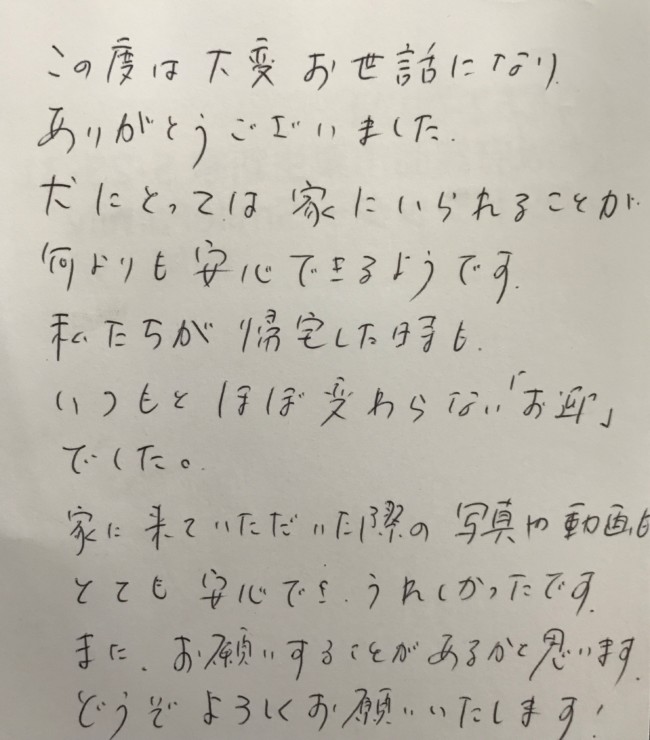 この度は大変お世話になり
ありがとうございました.
犬にとっては家にいられることが
何よりも安心できるようです.
私たちが帰宅した時も.
いつもとほぼ変わらない「お迎」
でした。
家に来ていただいた際の写真や動画も
とても安心でき.うれしかったです.
また、お願いすることがあるかと思います.
どうぞよろしくお願いいたします!